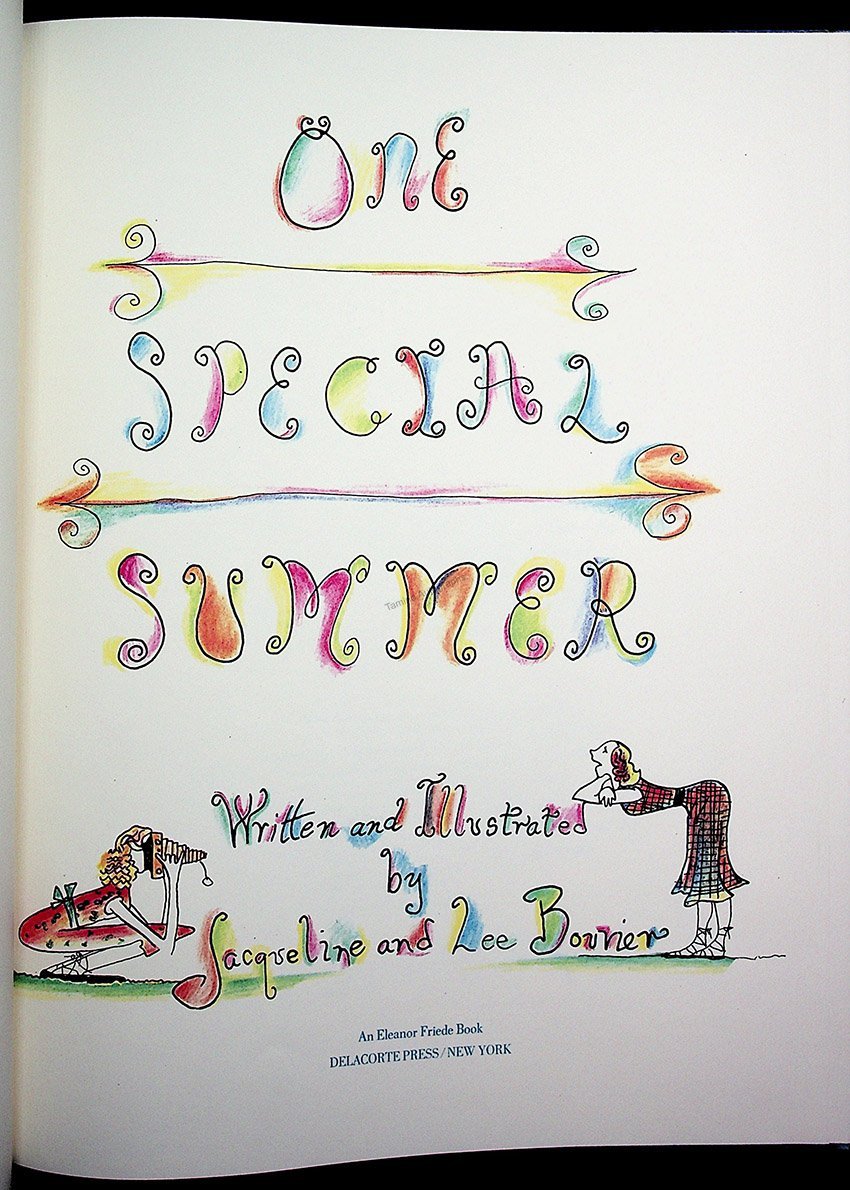 ONE
SPECIAL
SUMMER
Written and Illustrated
by
Jacqueline and Lee Bouvier
An Eleanor Friede Book
DELACORTE PRESS/NEW YORK